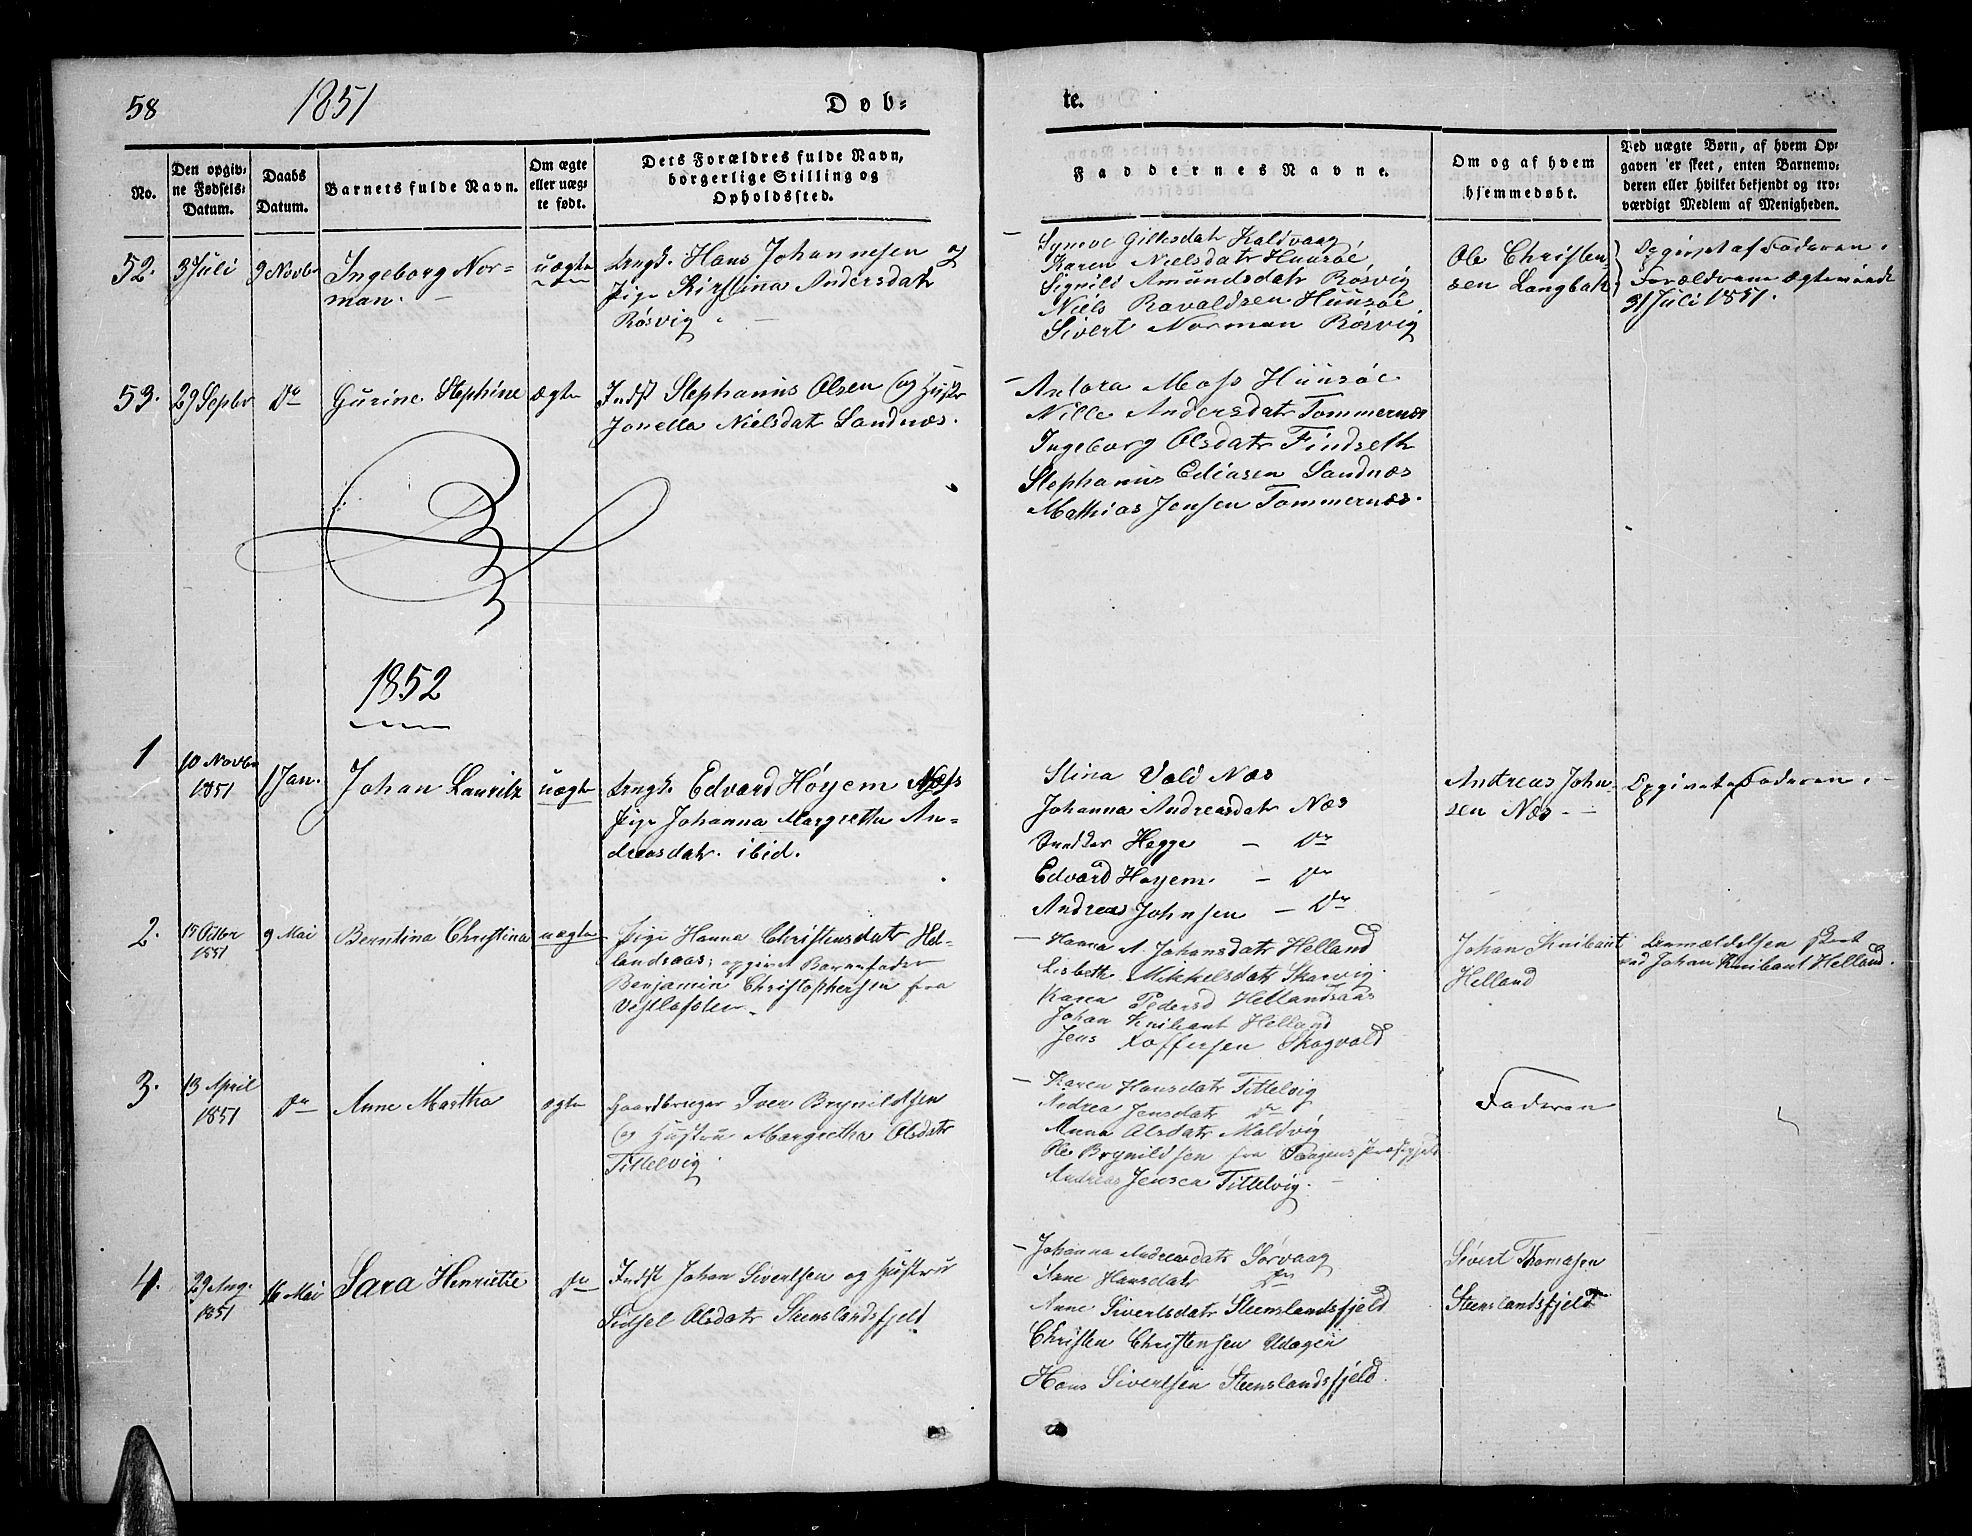 58
1851
Døb-
te.
No.
Den opgiv-
ne Fødsels-
Datum.
Daabs
Datum.
Barnets fulde Navn.
Om ægte
eller uæg-
te født.
Dets Forældres fulde Navn,
borgerlige Stilling og
Opholdssted.
Faddernes Navne.
Om og af hvem
hjemmedøbt.
Ved uægte Børn, af hvem Op-
gaven er skeet, enten Barnemo-
deren eller hvilket bekjendt og tro-
værdigt Medlem af Menigheden.
52.
3 Juli
9 Novbr
Ingeborg Nor-
man.
uægte
Ungk. Hans Johannesen og
Pige Kirstina Andersdatr
Røsvig.
Syneve Gilksdatr Kaldvaag
Karen Nielsdatr Huusøe
Signild Amundsdatr Røsvig
Niels Ravaldsen Huusøe
Sivert Norman Røsvig
Ole Christen-
sen Langbak
Opgivet af Faderen.
Forældrene Ægteviede
31 Juli 1851.
53.
29 Septbr
Do
Gurine Stephine
ægte
Indst Stephanus Olsen og Hustr
Jonella Nielsdatr Sandnæs.
Antora Moss Huusøe
Nille Andersdatr Tommernæs
Ingeborg Olsdatr Findseth
Stephanus Ediasen Sandnæs
Mathias Jensen Tommernæs.
1852
1
10 Novbr
1851
1 Jan.
Johan Lauritz
uægte
Ungk. Edvard Høyem Næss
Pige Johanna Margretha An-
dreasdatr. ibid.
Stina Vold Næs
Johanna Andreasdatr Næs
Hegge – Do
Edvard Høyem – Do
Andreas Johnsen – Do
Andreas John-
sen Næs –
Opgivet af Faderen.
2.
Octbr
1851
9 Mai
Berntina Christina
uægte
Pige Hanna Christensdatr Hel-
landsaas; opgivet Barnefader
Benjamin Christophersen fra
Hanna A. Johansdatr Helland
Lisbeth Mikkelsdatr Skarvig
Karen Pedersd Hellandsaas
Johan Knibant Helland
Jens Toffersen Skogvold
Johan Knibant
Helland
Anmeldelsen skeet
ved Johan Knibant Helland.
3.
13 April
1851
Do
Anne Martha
ægte
Gaardbruger Iver Brynildsen
og Hustru Margretha Olsdatr
Tittelvig.
Karen Hansdatr Tittelvig
Andrea Jensdatr Do
Anna Olsdatr Moldvig
Ole Brynildsen fra Præstgjeld
Andreas Jensen Tittelvig.
Faderen
4.
29 Aug.
1851
16 Mai
Sara Henriette
Do
Indst Johan Sivertsen og Hustru
Sidsel Olsdatr Steenslandsfjeld.
Johanna Andreasdatr Sørvaag
Anne Hansdatr Do
Anne Sivertsdatr Steenslandsfjeld
Christen Christensen
Hans Sivertsen Steenslandsfjeld
Sivert Thomasen
Steenslandsfjeld